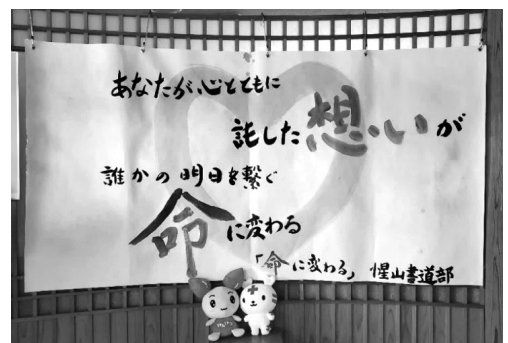 あなたが、心とともに
託した想いが
誰かの明日を繋ぐ
命に変わる
「命に変わる」 惺山書道部